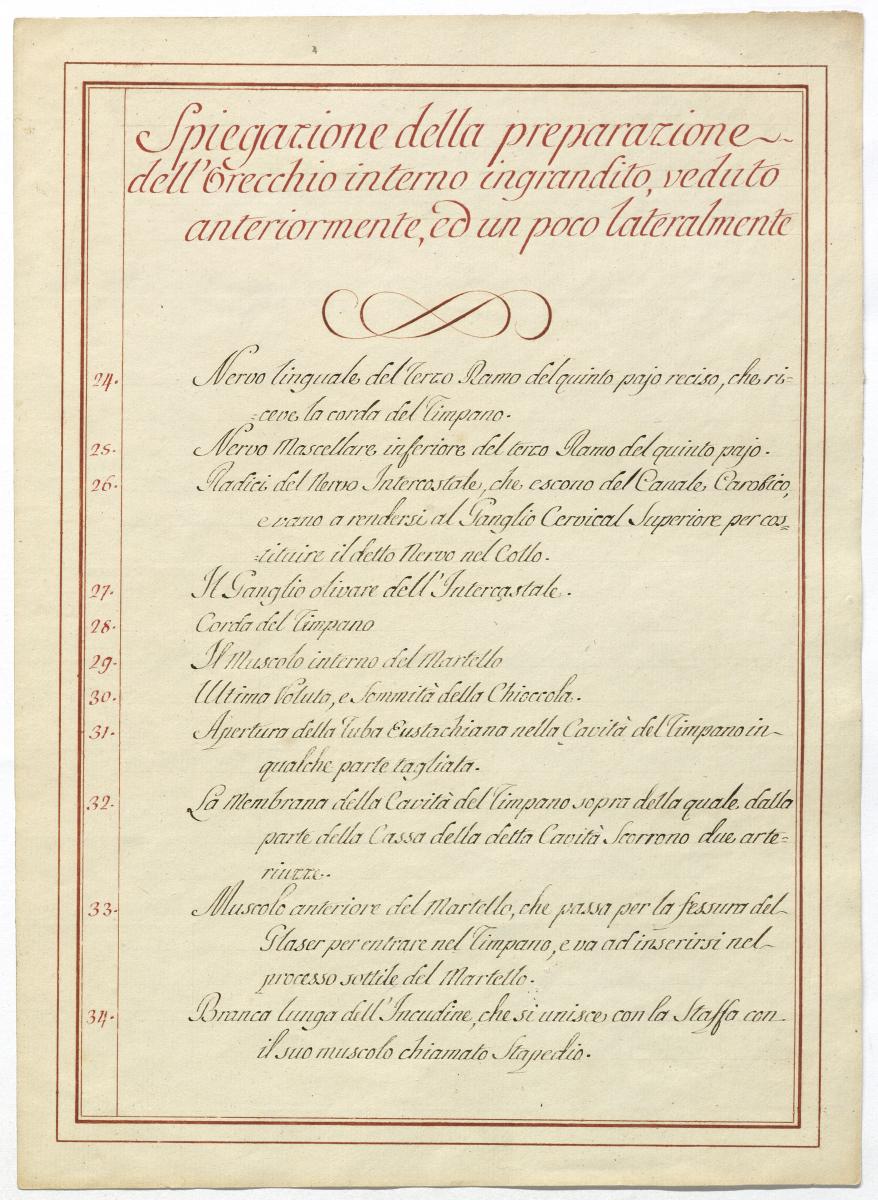 Spiegazione della preparazione
dell'Orecchio interno ingrandito, veduto
anteriormente, ed un poco lateralmente
24. Nervo linguale del Terzo Ramo del quinto pajo reciso, che ri=
=ceve la corda del Timpano.
25. Nervo Mascellare inferiore del terzo Ramo del quinto pajo.
26. Radici del Nervo Intercostale, che escono del Canale Carotico,
e vano a rendersi al Ganglio Cervical Superiore per cos=
=tituire il detto Nervo nel Collo.
27. Il Ganglio olivare dell'Intercostale.
28. Corda del Timpano
29. Il Muscolo interno del Martello
30. Ultima Voluta, e Sommità della Chioccola.
31. Apertura della Tuba Eustachiana nella Cavità del Timpano in-
qualche parte tagliata.
32. La Membrana della Cavità del Timpano sopra della quale dalla
parte della Cassa della detta Cavità Scorrono due arte=
riuzze.
33. Muscolo anteriore del Martello, che passa per la fessura del
Glaser per entrare nel Timpano, e va ad inserirsi nel
processo sottile del Martello.
34. Branca lunga dell'Incudine, che si unisce con la Staffa con
il suo muscolo chiamato Stapedio.